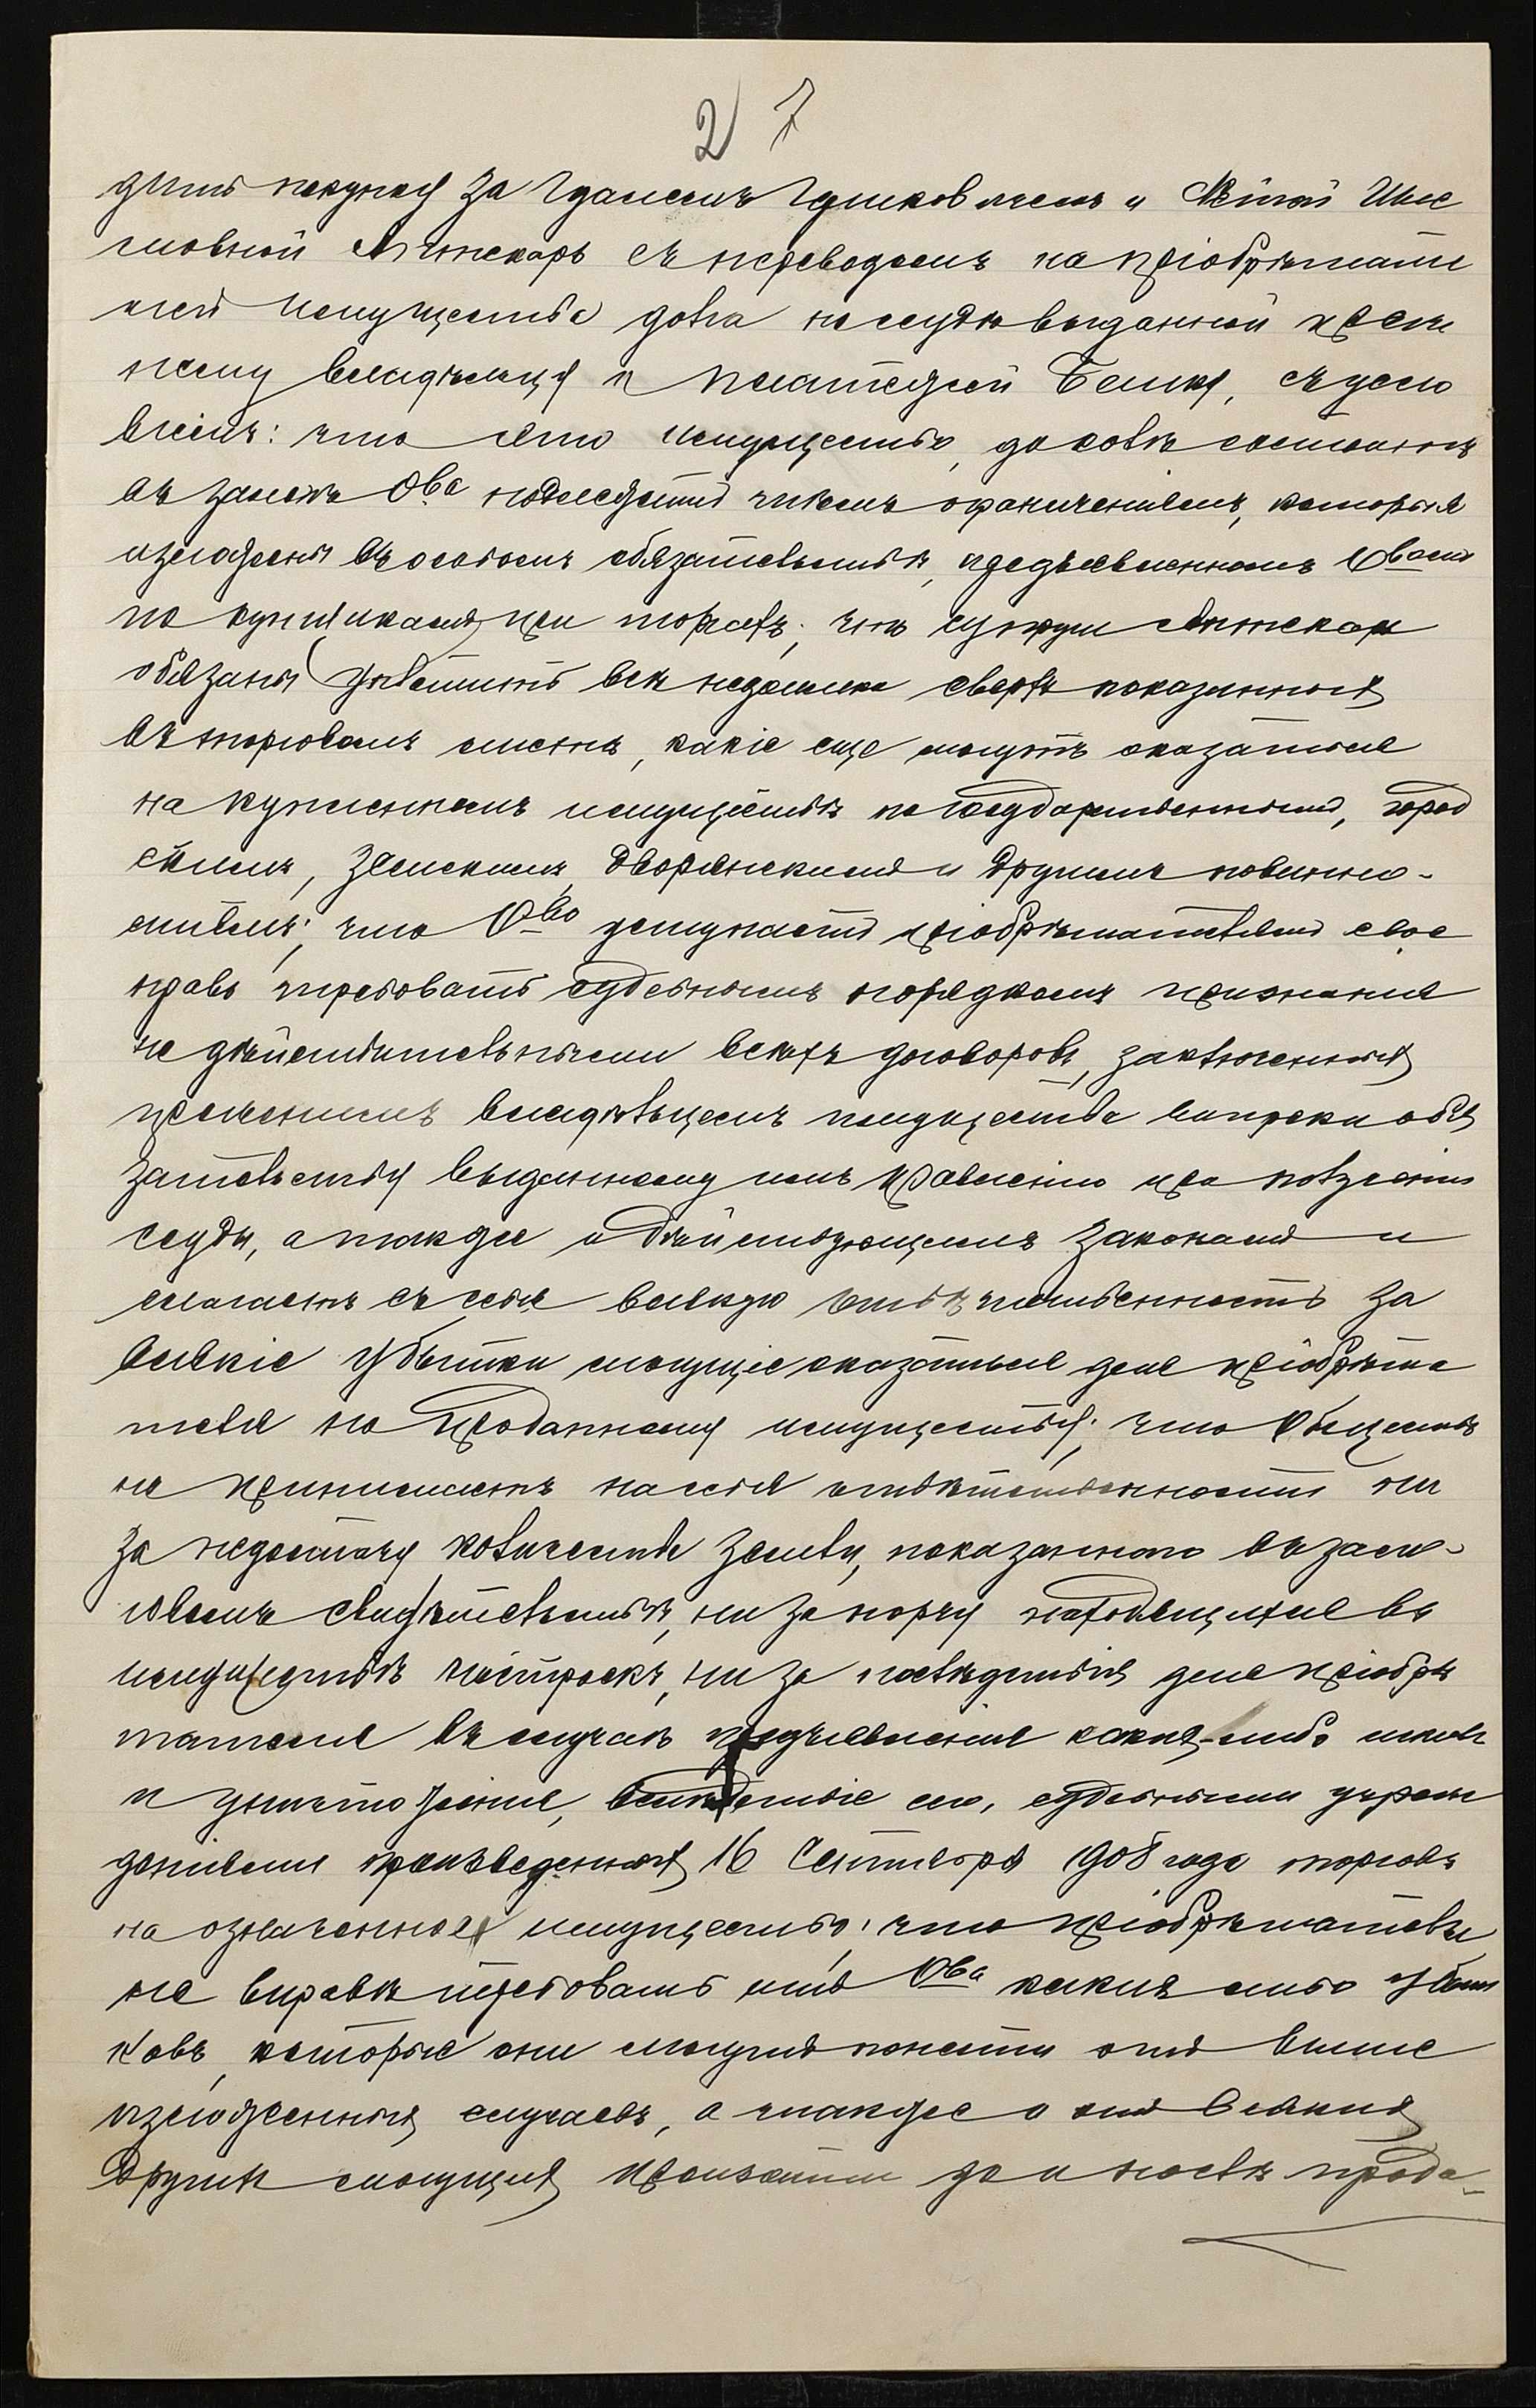 27
дитъ покупку за Иделемъ Ицковичемъ и Мѣтой Шме
мовной Аптекарь съ переводомъ на пріобрѣтате
лей имущества долга по ссудѣ выданной преж
нему владѣльцу и платежей Банку, съ усло
віемъ: что это имущество, доколѣ состоитъ
въ залогѣ Ова подлежитъ тѣмъ ограниченіямъ, которыя
изложены въ особомъ обязательствѣ, предъявленномъ Овомъ
покупщикамъ при торгахъ; что супруги Аптекарь
обязаны уплатить всѣ недоимки сверхъ показанныхъ
въ торговомъ листѣ, какіе еще могутъ оказаться
на купленномъ имуществѣ по Государственнымъ, город
скимъ, земскимъ, дворянскимъ и другимъ повинно-
стямъ; что Ово уступаетъ пріобрѣтателямъ свое
право требовать судебнымъ порядкомъ признанія
не дѣйствительными всѣхъ договоровъ, заключенныхъ
прежнимъ владѣльцемъ имущества вопреки обя
зательству выданному имъ Правленію при полученіи
ссуды, а также и дѣйствующимъ законамъ и
слагаетъ съ себя всякую отвѣтственность за
всякіе убытки могущіе оказаться для пріобрѣта
теля по проданному имуществу; что Общество
не принимаетъ на себя отвѣтственности ни
за недостачу количества земли, показаннаго въ зало-
говомъ свидѣтельствѣ, ни за порчу находящихся въ
имуществѣ построекъ, ни за послѣдствія для пріобрѣ
тателя въ случаѣ предъявленія какихъ-либо исковъ
и уничтоженія, вслѣдствіе сего, судебными учреж
деніями произведенныхъ 16 Сентября 1908 года торговъ
на означенное имущество; что пріобрѣтатели
не вправѣ требовать отъ Ова какихъ либо убыт
ковъ, которые они могутъ понести отъ выше
изложенныхъ случаевъ, а также и отъ всякихъ
другихъ могущихъ произойти до и послѣ прода-